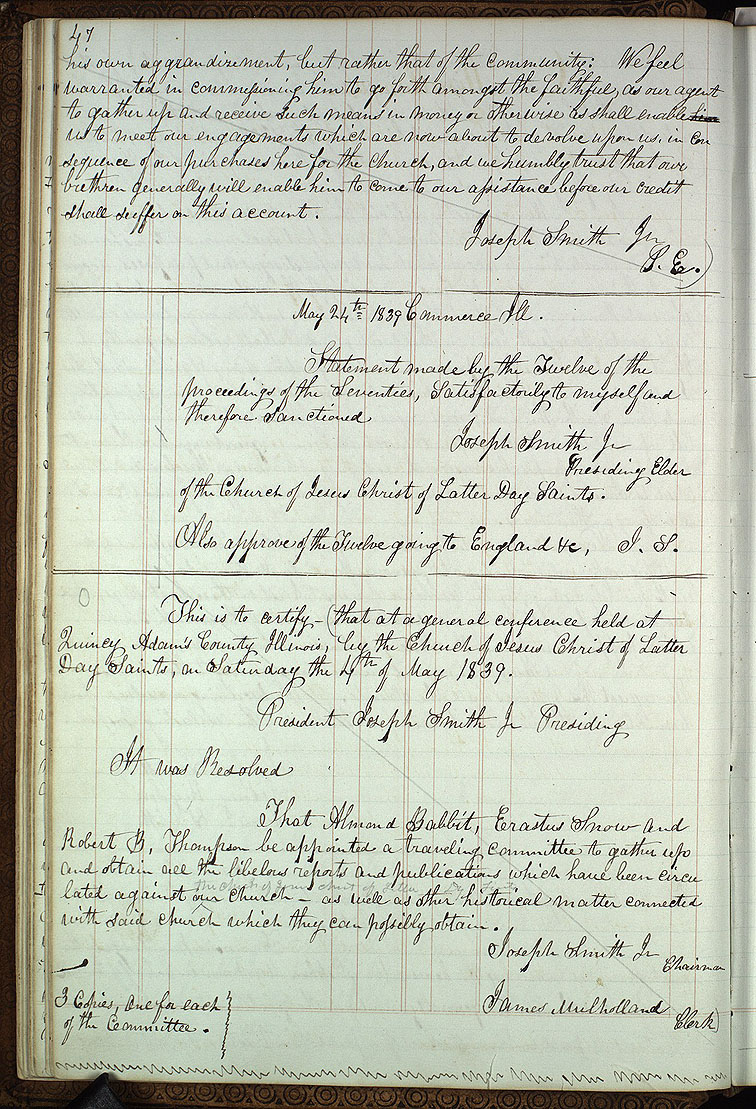 47
his own aggrandizement, but rather that of the community: We feel
warranted in commissioning him to go forth amongst the faithful, as our agent
to gather up and receive such means in money or otherwise as shall enable him
us to meet our engagements which are now about to devolve upon us, in con
sequence of our purchases here for the church, and we humbly trust that our
brethren generally will enable him to come to our assistance before our credit
shall suffer on this account.
Joseph Smith Jr
P. E.)
May 24th 1839 Commerce Ill.
Statement made by the Twelve of the
proceedings of the Seventies, Satisfactorily to myself and
therefore Sanctioned
Joseph Smith Jr
Presiding Elder
of the Church of Jesus Christ of Latter Day Saints.
Also approve of the Twelve going to England &c, J. S.
This is to certify - (that at a general conference held at
Quincy Adam's County Illinois, by the Church of Jesus Christ of Latter
Day Saints, on Saturday the 4th of May 1839.
President Joseph Smith Jr Presiding
It was Resolved
That Almond Babbit, Erastus Snow and
Robert B, Thompson be appointed a traveling committee to gather up
and obtain all the libelous reports and publications which have been circu
the Church of Jesus Christ of Latter Day Saints
lated against our church - as well as other historical matter connected
with said church which they can possibly obtain.
Joseph Smith Jr
Chairman
James Mulholland
Clerk)
3 Copies, one for each
of the Committee.